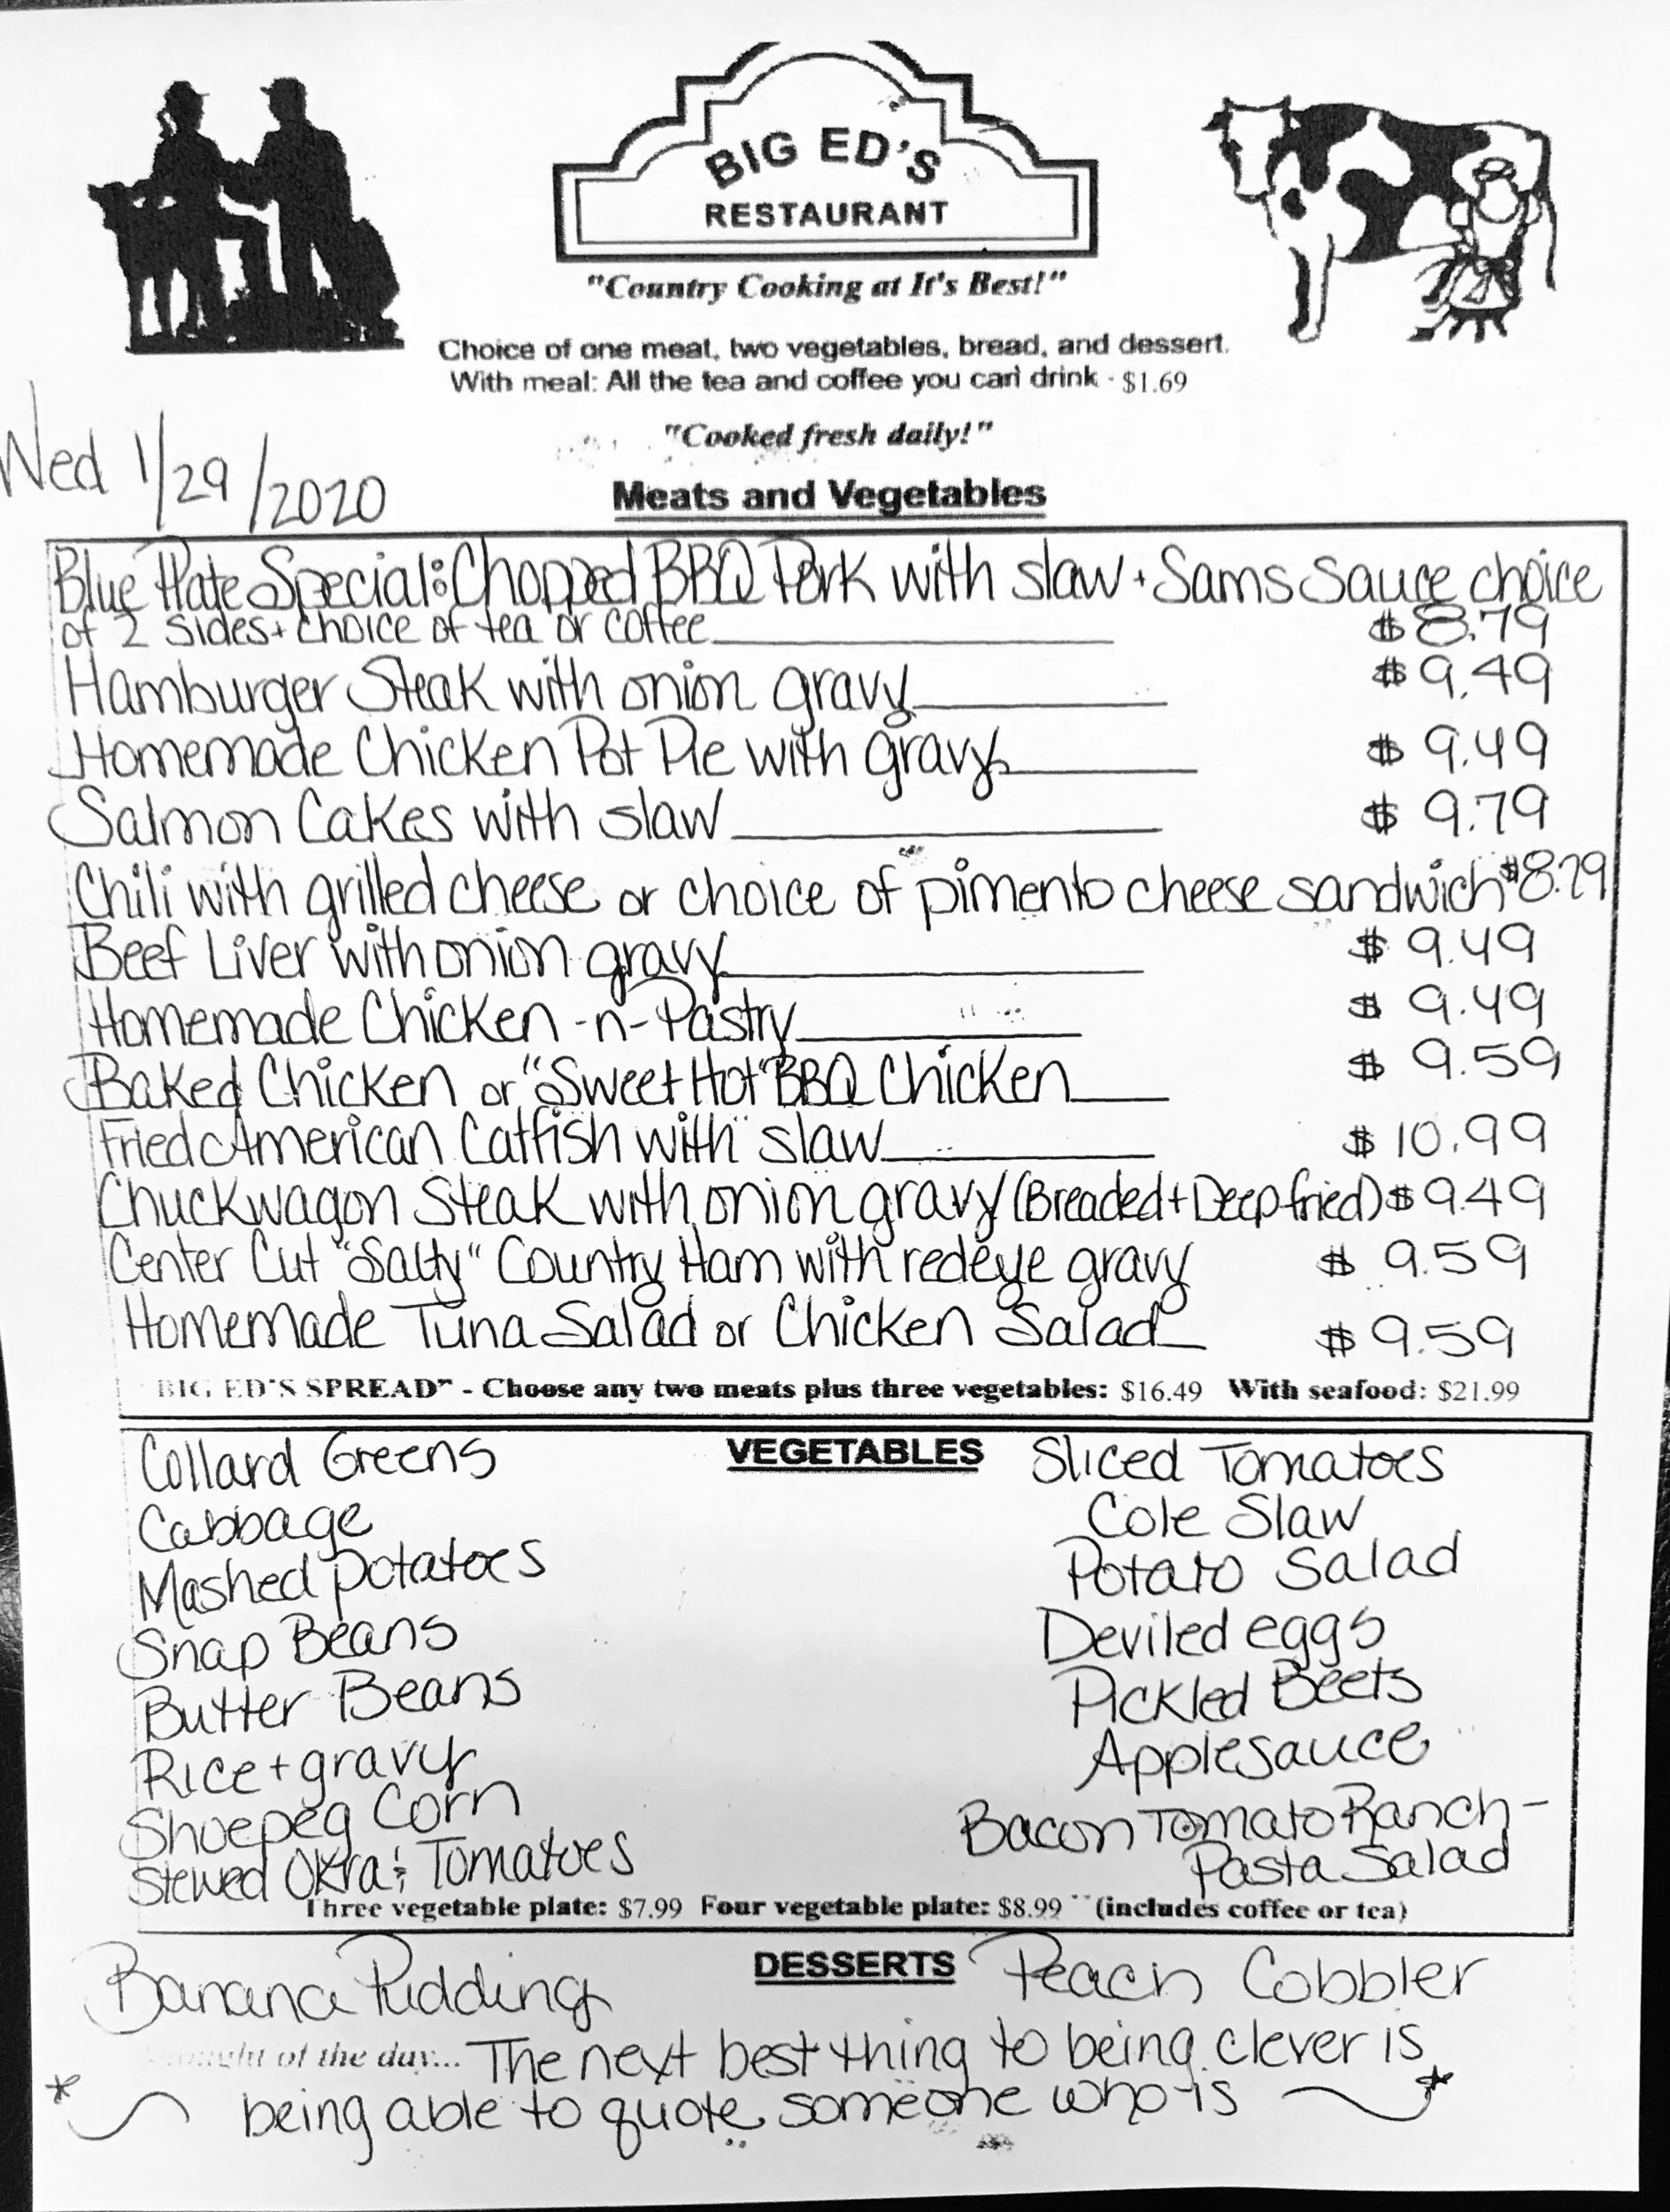 BIG ED'S
RESTAURANT
"Country Cooking at It's Best!"
Choice of one meat, two vegetables, bread, and dessert.
With meal: All the tea and coffee you can drink - $1.69
"Cooked fresh daily!"
Wed 1/29/2020
Meats and Vegetables
Blue Plate Special: Chopped BBQ Pork with slaw + Sams Sauce choice
of 2 sides + choice of tea or coffee $8.79
Hamburger Steak with onion gravy $9.49
Homemade Chicken Pot Pie with gravy $9.49
Salmon Cakes with slaw $9.79
Chili with grilled cheese or choice of pimento cheese sandwich $8.79
Beef Liver with onion gravy $9.49
Homemade Chicken-n-Pastry $9.49
Baked Chicken or "Sweet Hot" BBQ Chicken $9.59
Fried American Catfish with slaw $10.99
Chuckwagon Steak with onion gravy (Breaded + Deep fried) $9.49
Center Cut "Salty" Country Ham with redeye gravy $9.59
Homemade Tuna Salad or Chicken Salad $9.59
BIG ED'S SPREAD" - Choose any two meats plus three vegetables: $16.49 With seafood: $21.99
VEGETABLES
Collard Greens
Cabbage
Mashed potatoes
Snap Beans
Butter Beans
Rice + gravy
Shoepeg Corn
Stewed Okra & Tomatoes
Sliced Tomatoes
Cole Slaw
Potato Salad
Deviled eggs
Pickled Beets
Applesauce
Bacon Tomato Ranch-
Pasta Salad
Three vegetable plate: $7.99 Four vegetable plate: $8.99 (includes coffee or tea)
DESSERTS
Banana Pudding
Peach Cobbler
of the day... The next best thing to being clever is
being able to quote someone who is